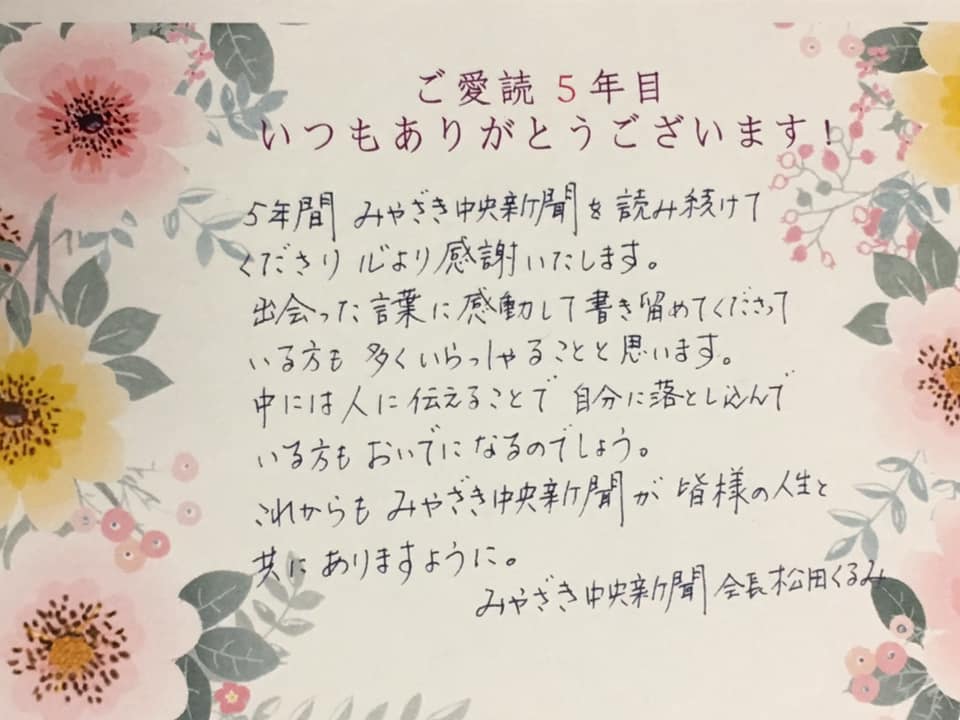 ご愛読 5年目
いつもありがとうございます!
5年間 みやざき中央新聞を読み続けて
くださり 心より感謝いたします。
出会った言葉に感動して書き留めてくださって
いる方も 多くいらっしゃることと思います。
中には人に伝えることで 自分に落とし込んで
いる方も おいでになるのでしょう。
これからも みやざき中央新聞が 皆様の人生と
共に ありますように。
みやざき中央新聞 会長 松田くるみ